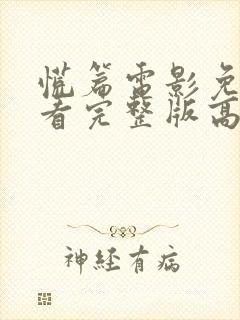 慌篇电影免
看完整版高
神经有病